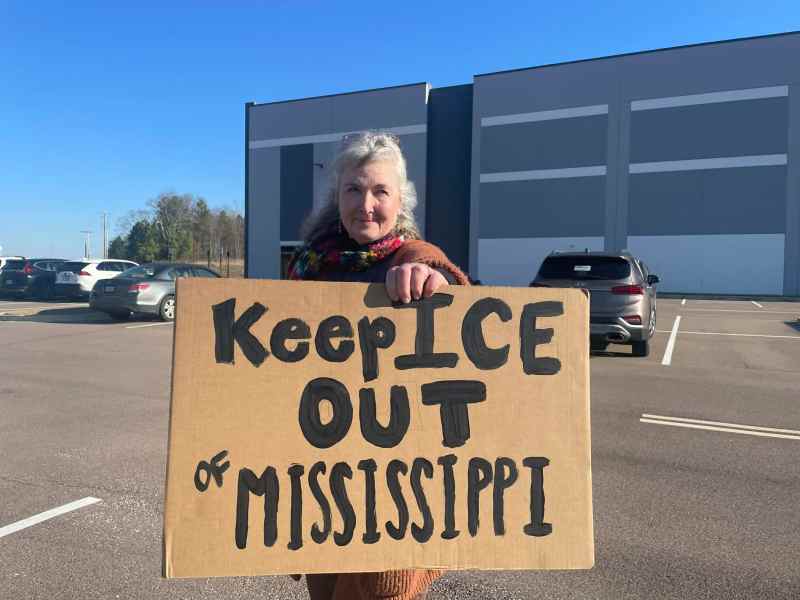 Keep ICE
OUT
OF MISSISSIPPI